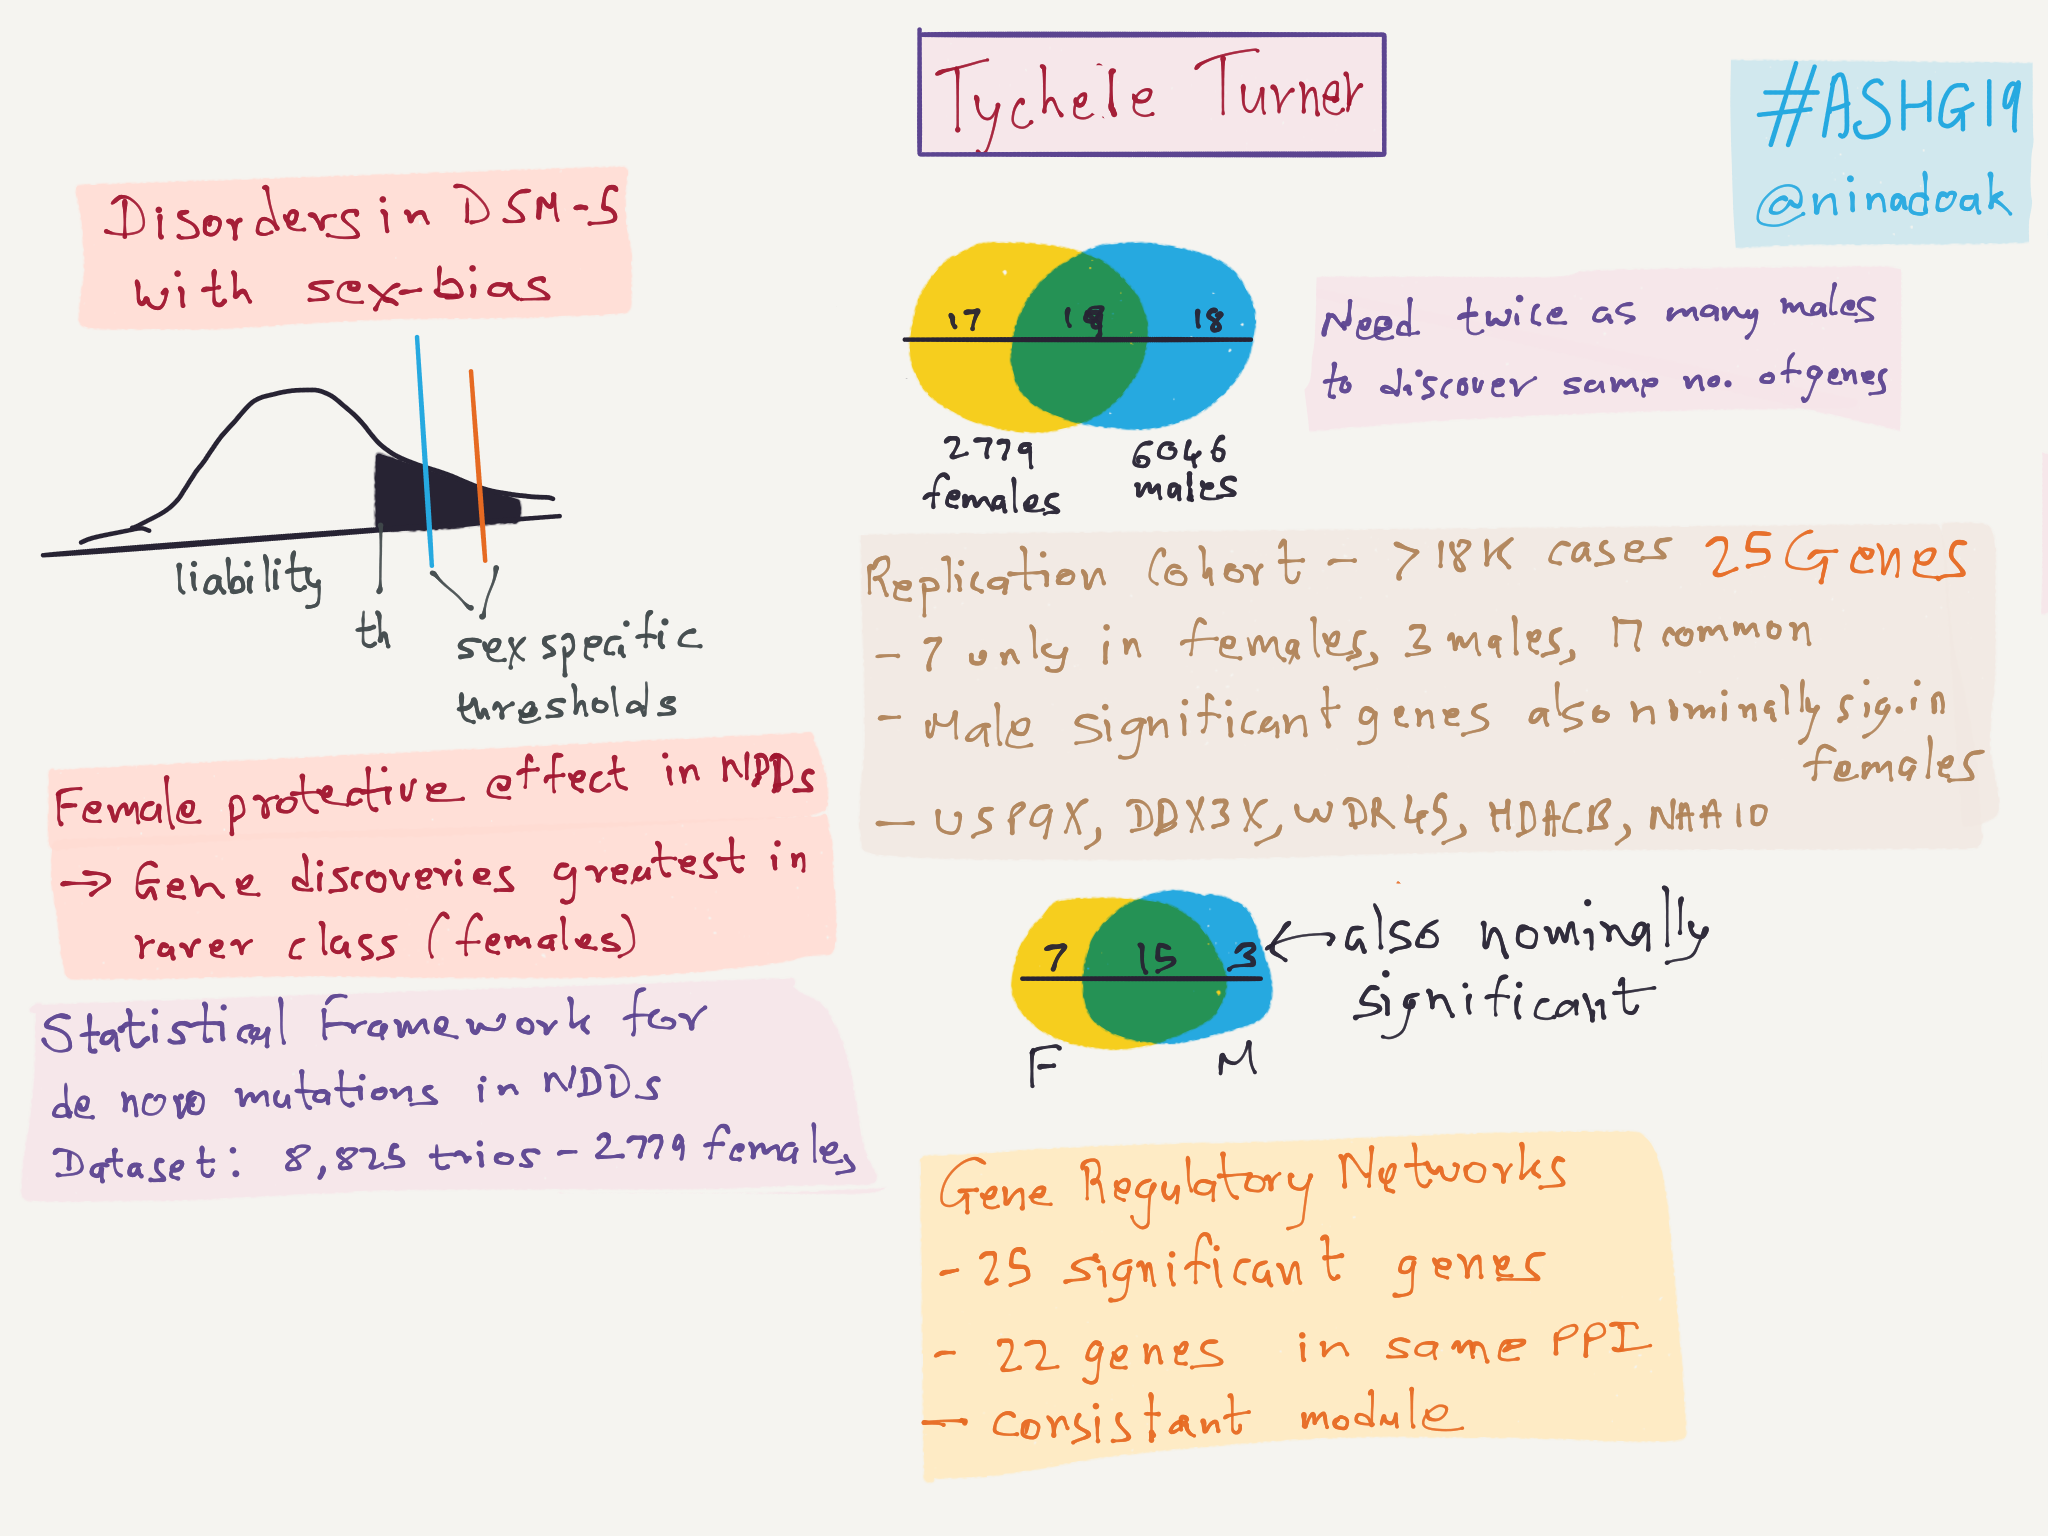 Tychele Turner
#ASHG19
@ninadoak
Disorders in DSM-5
with sex-bias
liability
th
sex specific
thresholds
Female protective effect in NDDs
→ Gene discoveries greatest in
rarer class (females)
Statistical Framework for
de novo mutations in NDDs
Dataset: 8,825 trios - 2779 females
17 19 18
2779
females
6046
males
Need twice as many males
to discover same no. of genes
Replication Cohort - >18K cases 25 Genes
- 7 only in females, 3 males, 17 common
- Male significant genes also nominally sig. in
females
- USP9X, DDX3X, WDR45, HDAC8, NAA10
7 15 3
F M
← also nominally
significant
Gene Regulatory Networks
- 25 significant genes
- 22 genes in same PPI
- consistant module